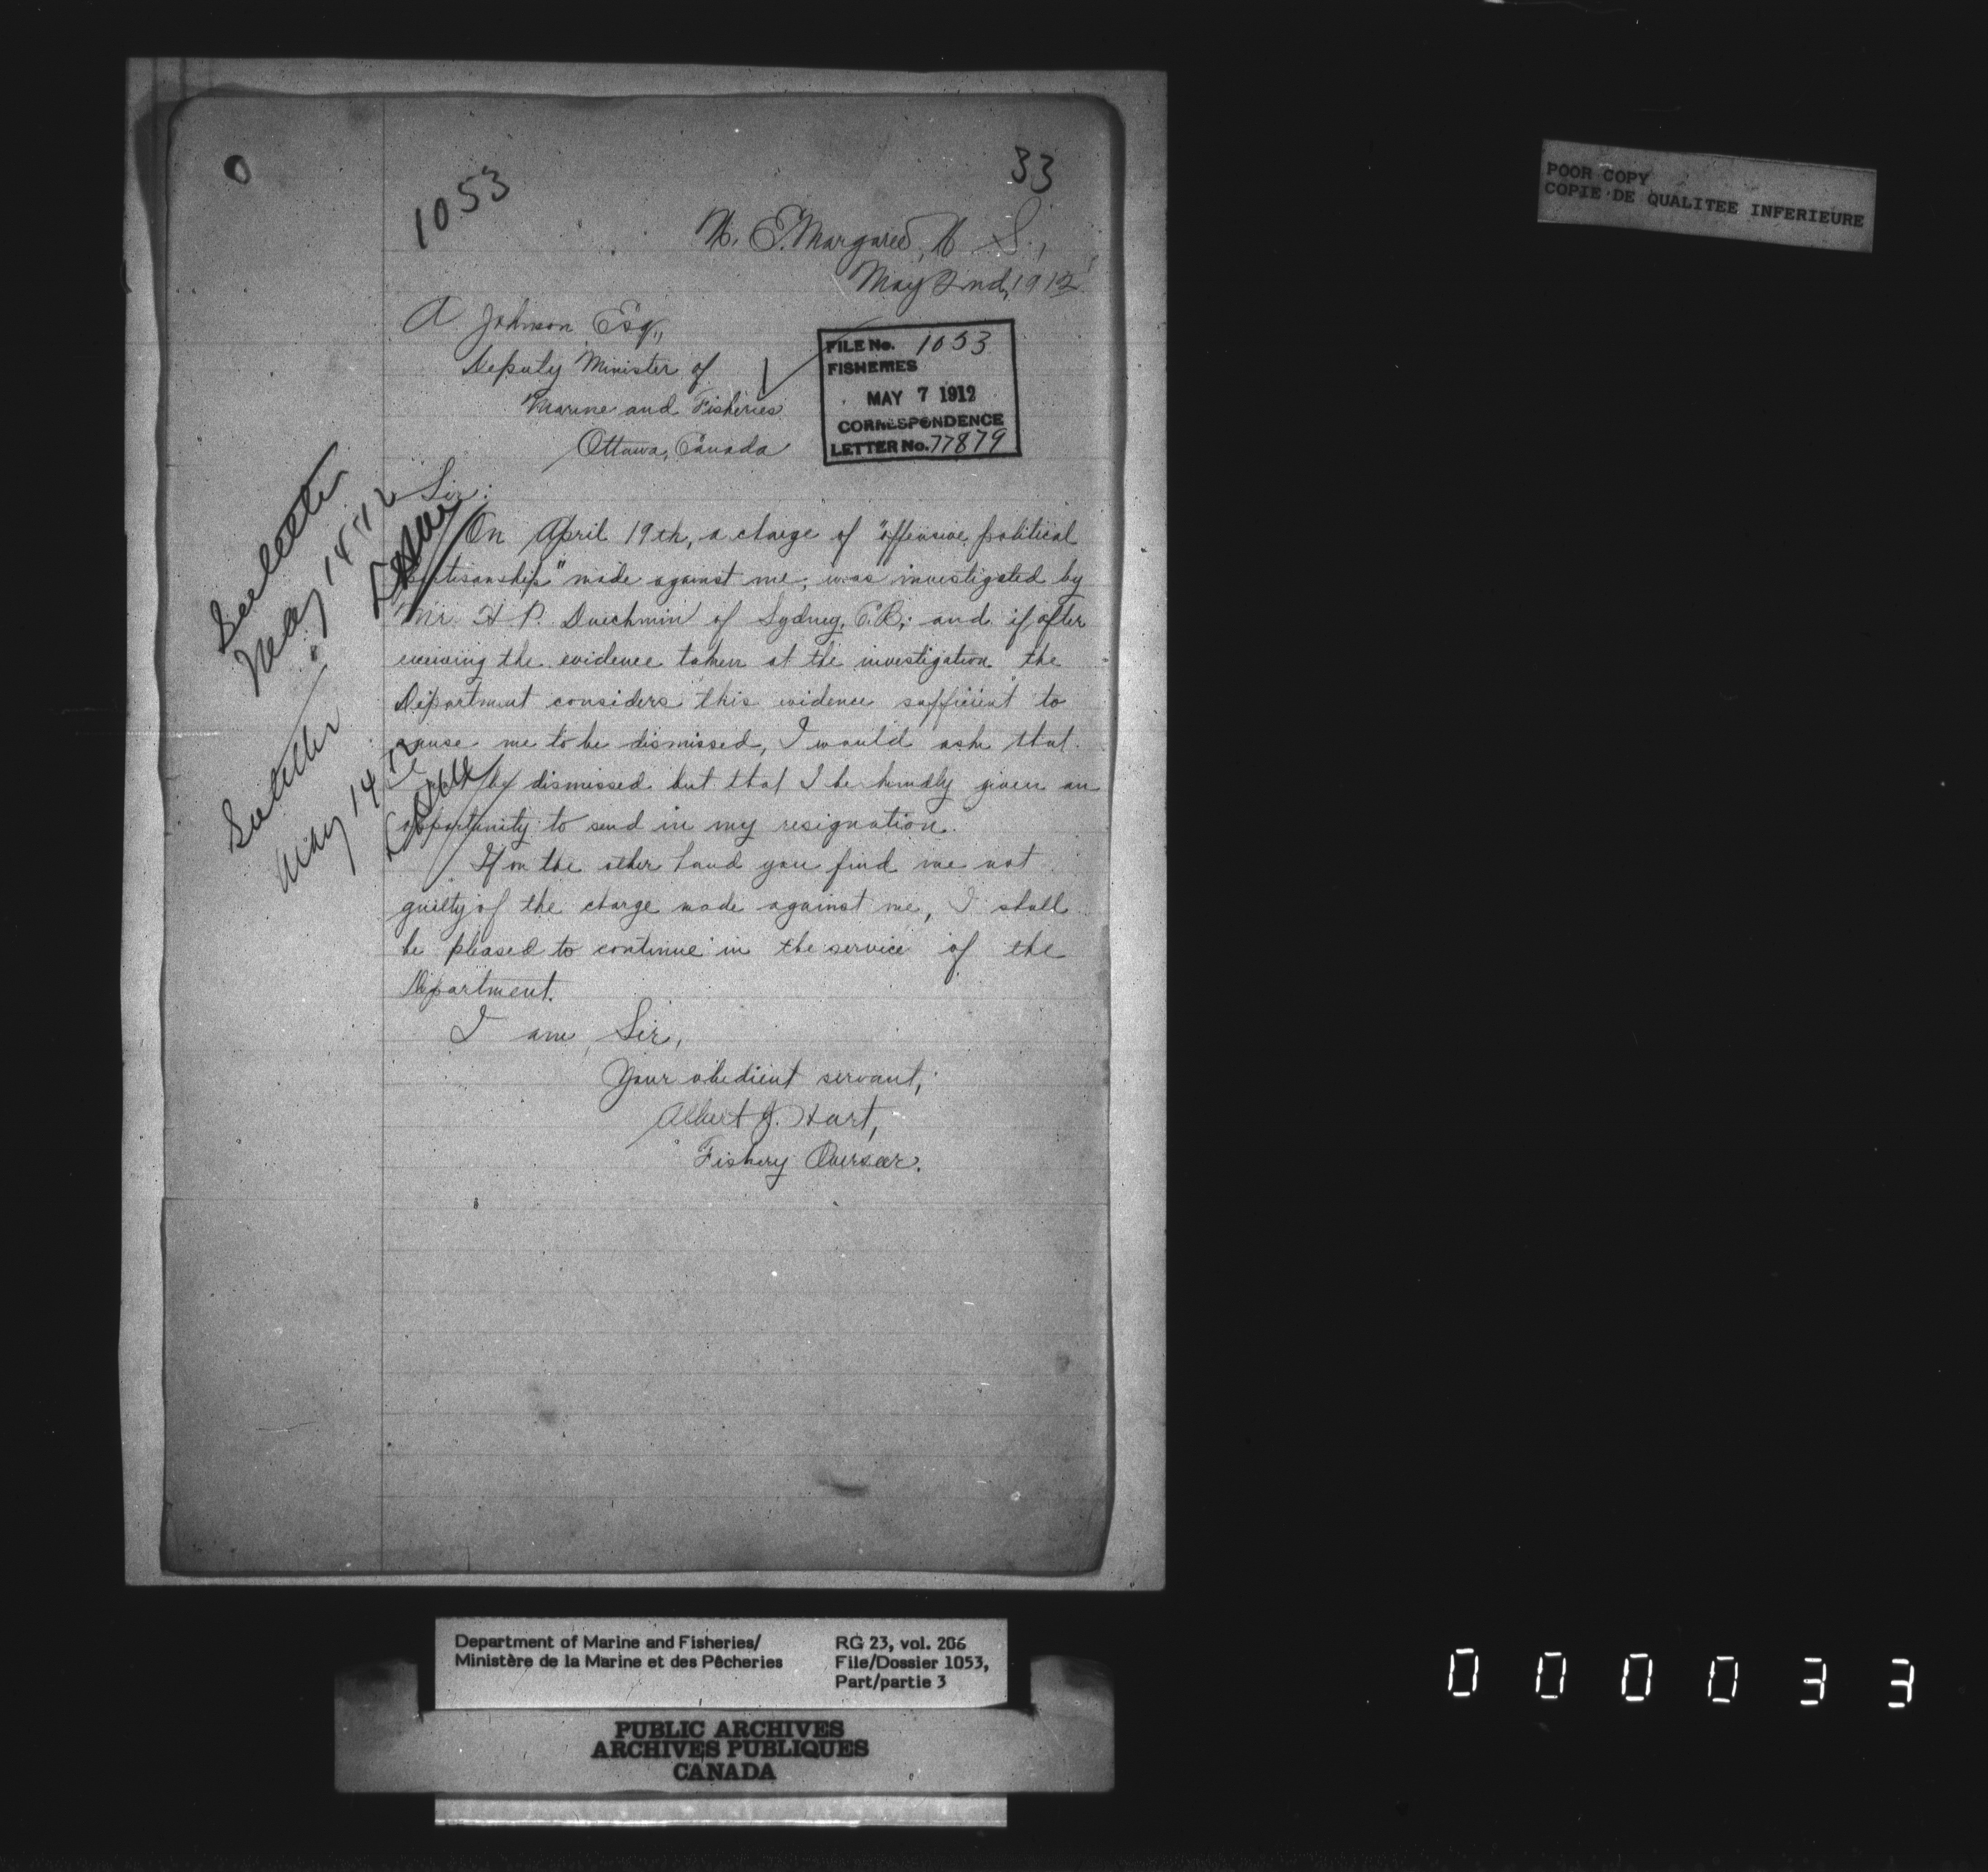 33
1053
N. E. Margaree, N. S.,
May 2nd, 1912
A. Johnson Esq.,
Deputy Minister of
Marine and Fisheries
Ottawa, Canada
FILE No. 1053
FISHERIES
MAY 7 1912
CORRESPONDENCE
LETTER No. 77879
Sir:
On April 19th, a charge of "offensive political
partisanship" made against me, was investigated by
Mr. H. P. Duchemin of Sydney, C.B.; and if after
receiving the evidence taken at the investigation the
Department considers this evidence sufficient to
cause me to be dismissed, I would ask that
I not be dismissed but that I be kindly given an
opportunity to send in my resignation.
If on the other hand you find me not
guilty of the charge made against me, I shall
be pleased to continue in the service of the
Department.
I am, Sir,
Your obedient servant,
Albert J. Hart,
Fishery Overseer.
See letter
May 14 1912
See letter
May 14 12
POOR COPY
COPIE DE QUALITEE INFERIEURE
Department of Marine and Fisheries/
Ministère de la Marine et des Pêcheries
RG 23, vol. 206
File/Dossier 1053,
Part/partie 3
PUBLIC ARCHIVES
ARCHIVES PUBLIQUES
CANADA
000033